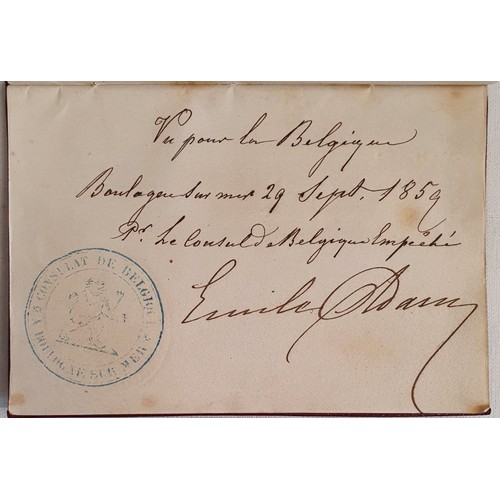 Vu pour la Belgique
Boulogne sur mer 29 Sept. 1859
Pr. Le Consul de Belgique Empêché
Emile Adam
CONSULAT DE BELGIQUE
A BOULOGNE SUR MER